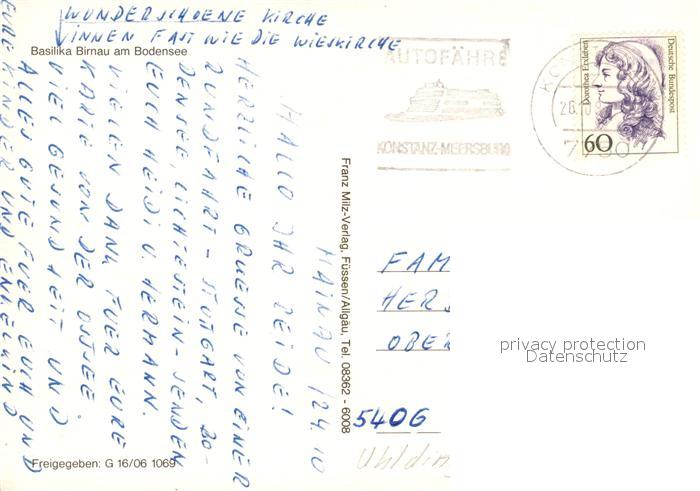 WUNDERSCHOENE KIRCHE
INNEN FAST WIE DIE WIESKIRCHE
Basilika Birnau am Bodensee
MAINAU / 24.10
HALLO IHR BEIDE!
HERZLICHE GRUESSE VON EINER
RUNDFAHRT - STUTTGART, BO-
DENSEE, LICHTESTEIN - SENDEN
EUCH HEIDI U. HERMANN.
VIELEN DANK FUER EURE
KARTE VON DER OSTSEE
VIEL GESUNDHEIT UND
ALLES GUTE FUER EUCH UND
EURE KINDER UND ENKELKIND
Freigegeben: G 16/06 1069
Franz Milz-Verlag, Füssen/Allgäu, Tel. 08362 - 6008
AUTOFÄHRE
KONSTANZ-MEERSBURG
Dorothea Erxleben
Deutsche Bundespost
60
FAM
HER
OBER
5406
privacy protection
Datenschutz